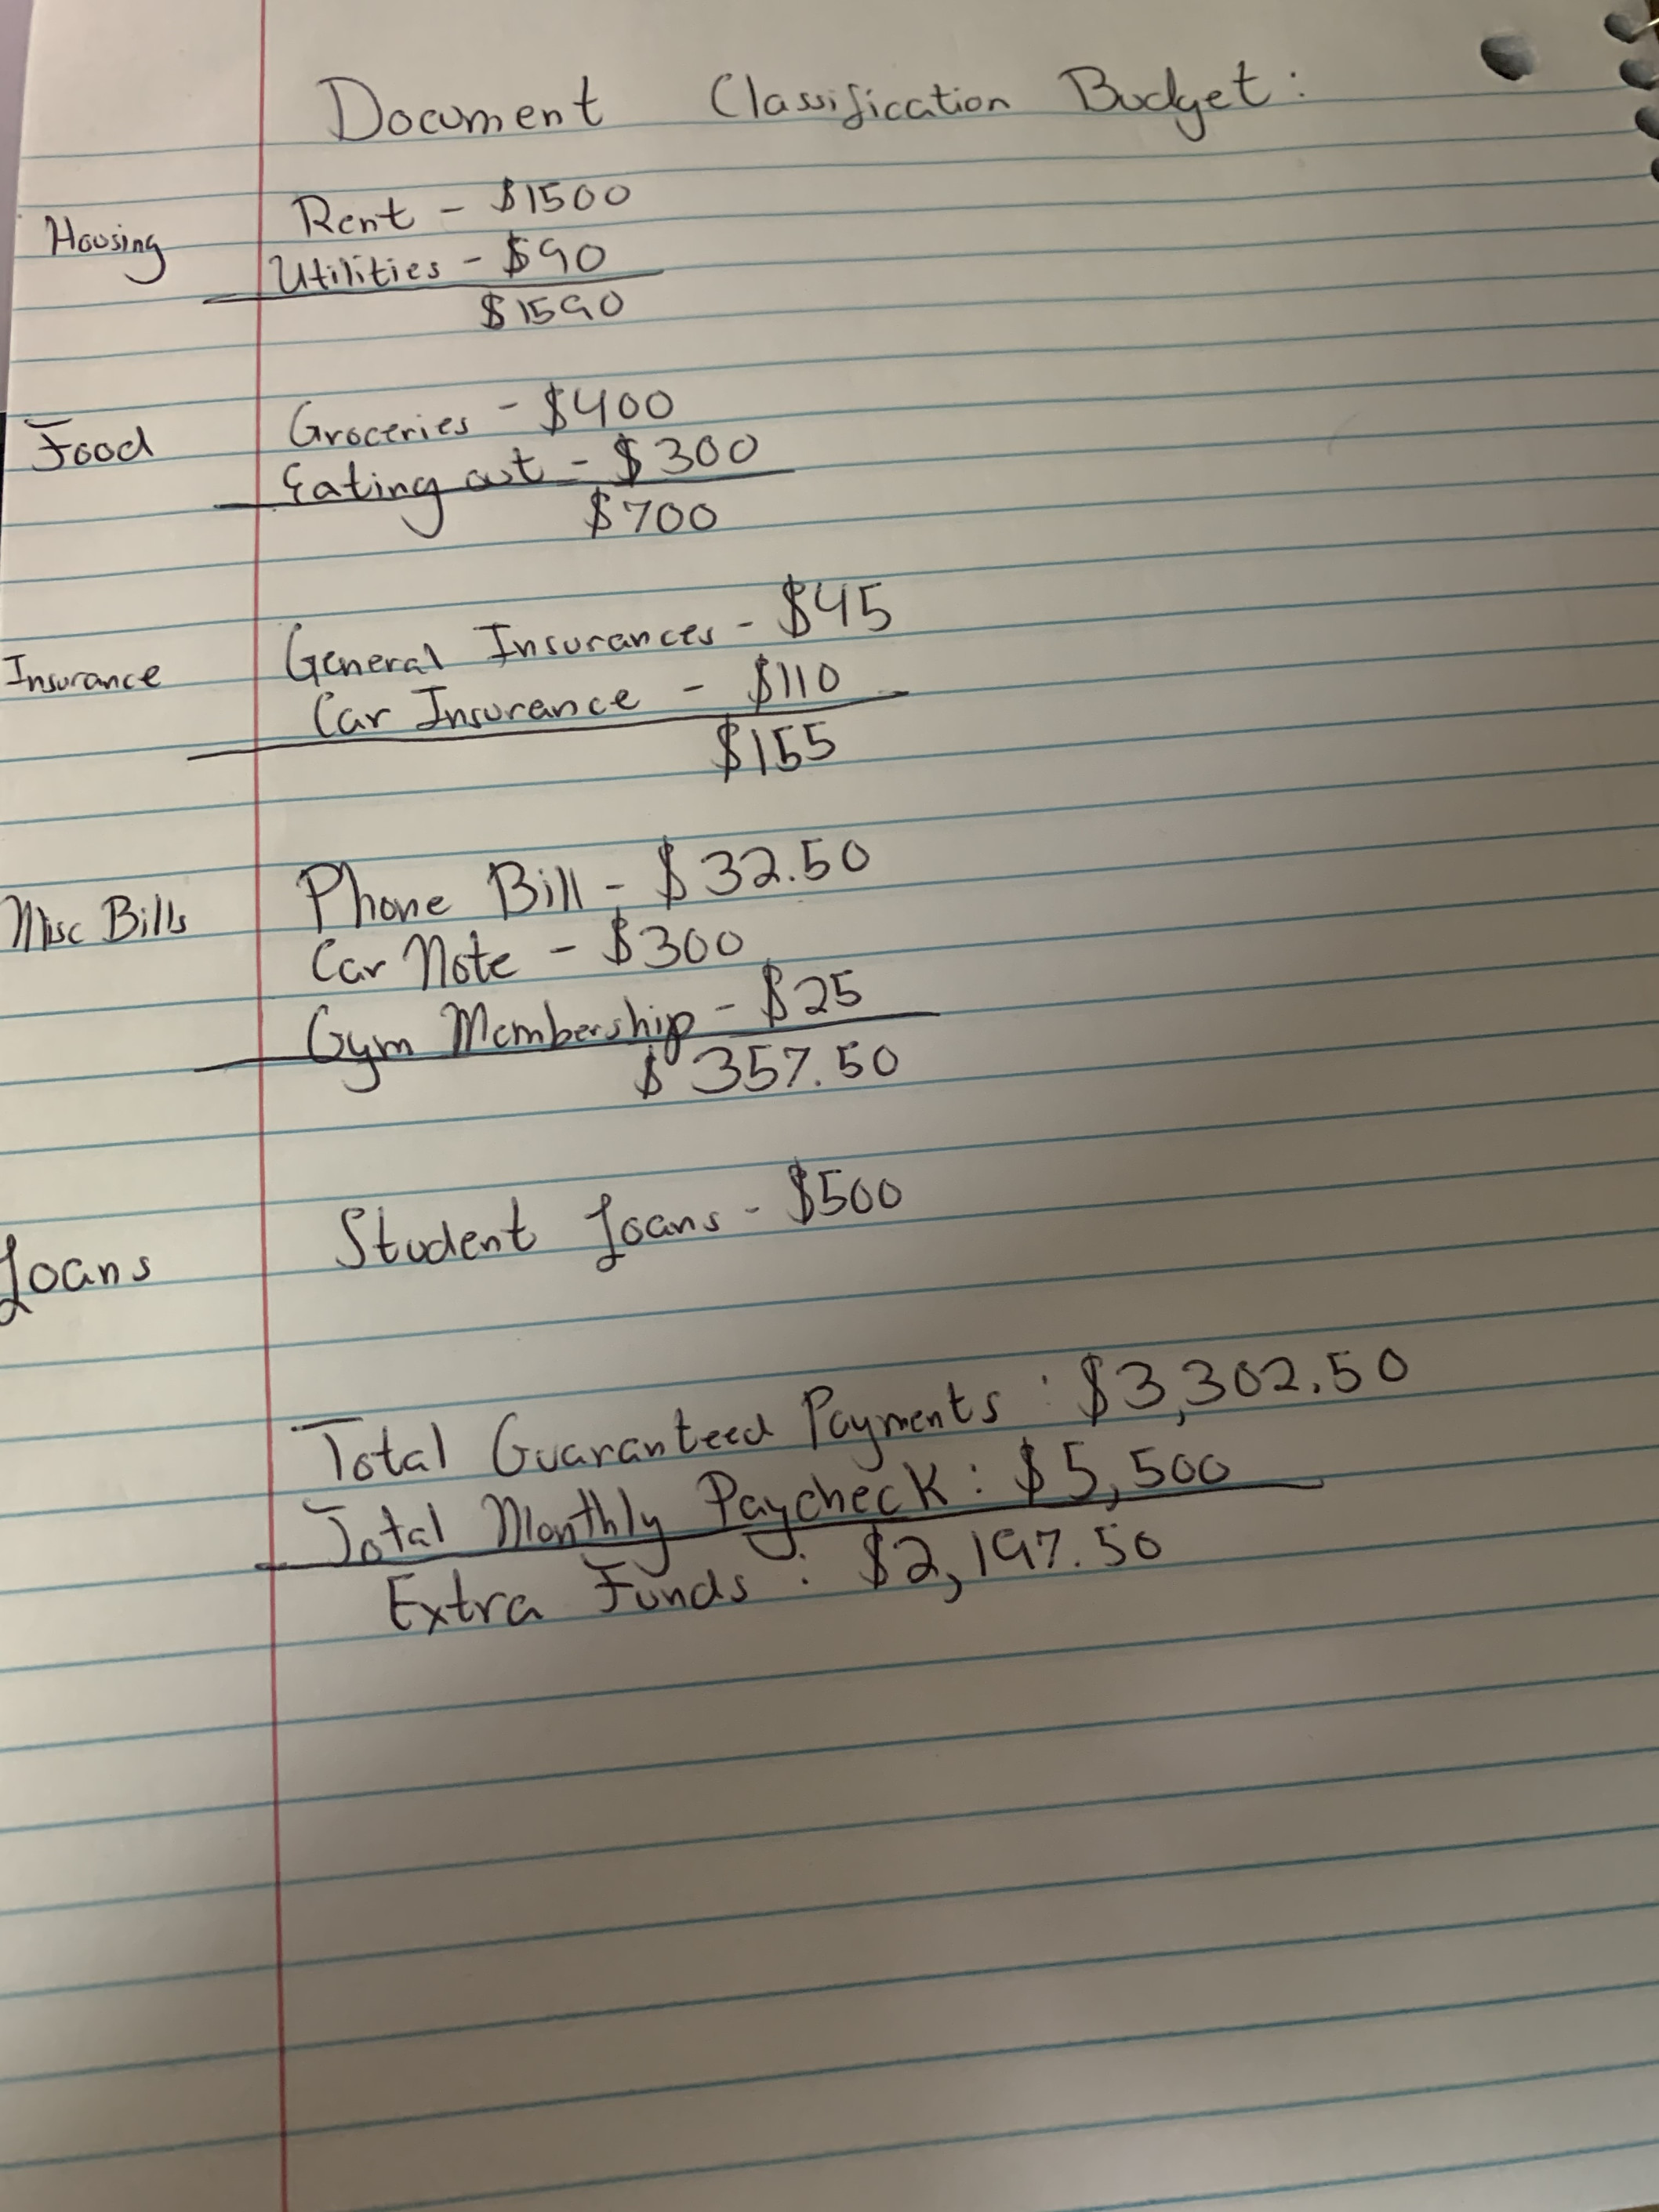 Document Classification Budget:
Housing
Rent - $1500
Utilities - $90
$1590
Food
Groceries - $400
Eating out - $300
$700
Insurance
General Insurances - $45
Car Insurance - $110
$155
Misc Bills
Phone Bill - $32.50
Car Note - $300
Gym Membership - $25
$357.50
Loans
Student Loans - $500
Total Guaranteed Payments: $3,302.50
Total Monthly Paycheck: $5,500
Extra Funds: $2,197.50